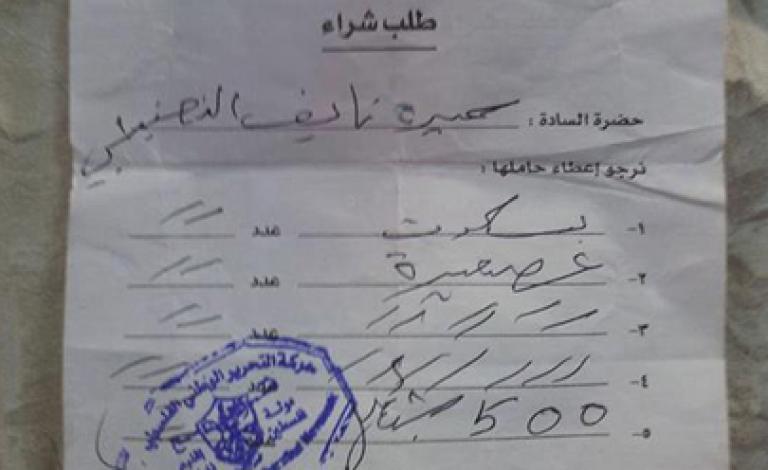 طلب شراء
حضرة السادة : سميرة نايف
نرجو إعطاء حاملها :
١- بسكوت عدد //
٢- عصيرة عدد //
٣- // // // عدد //
٤- // // //
٥- 500 شيكل
حركة التحرير الوطني الفلسطيني